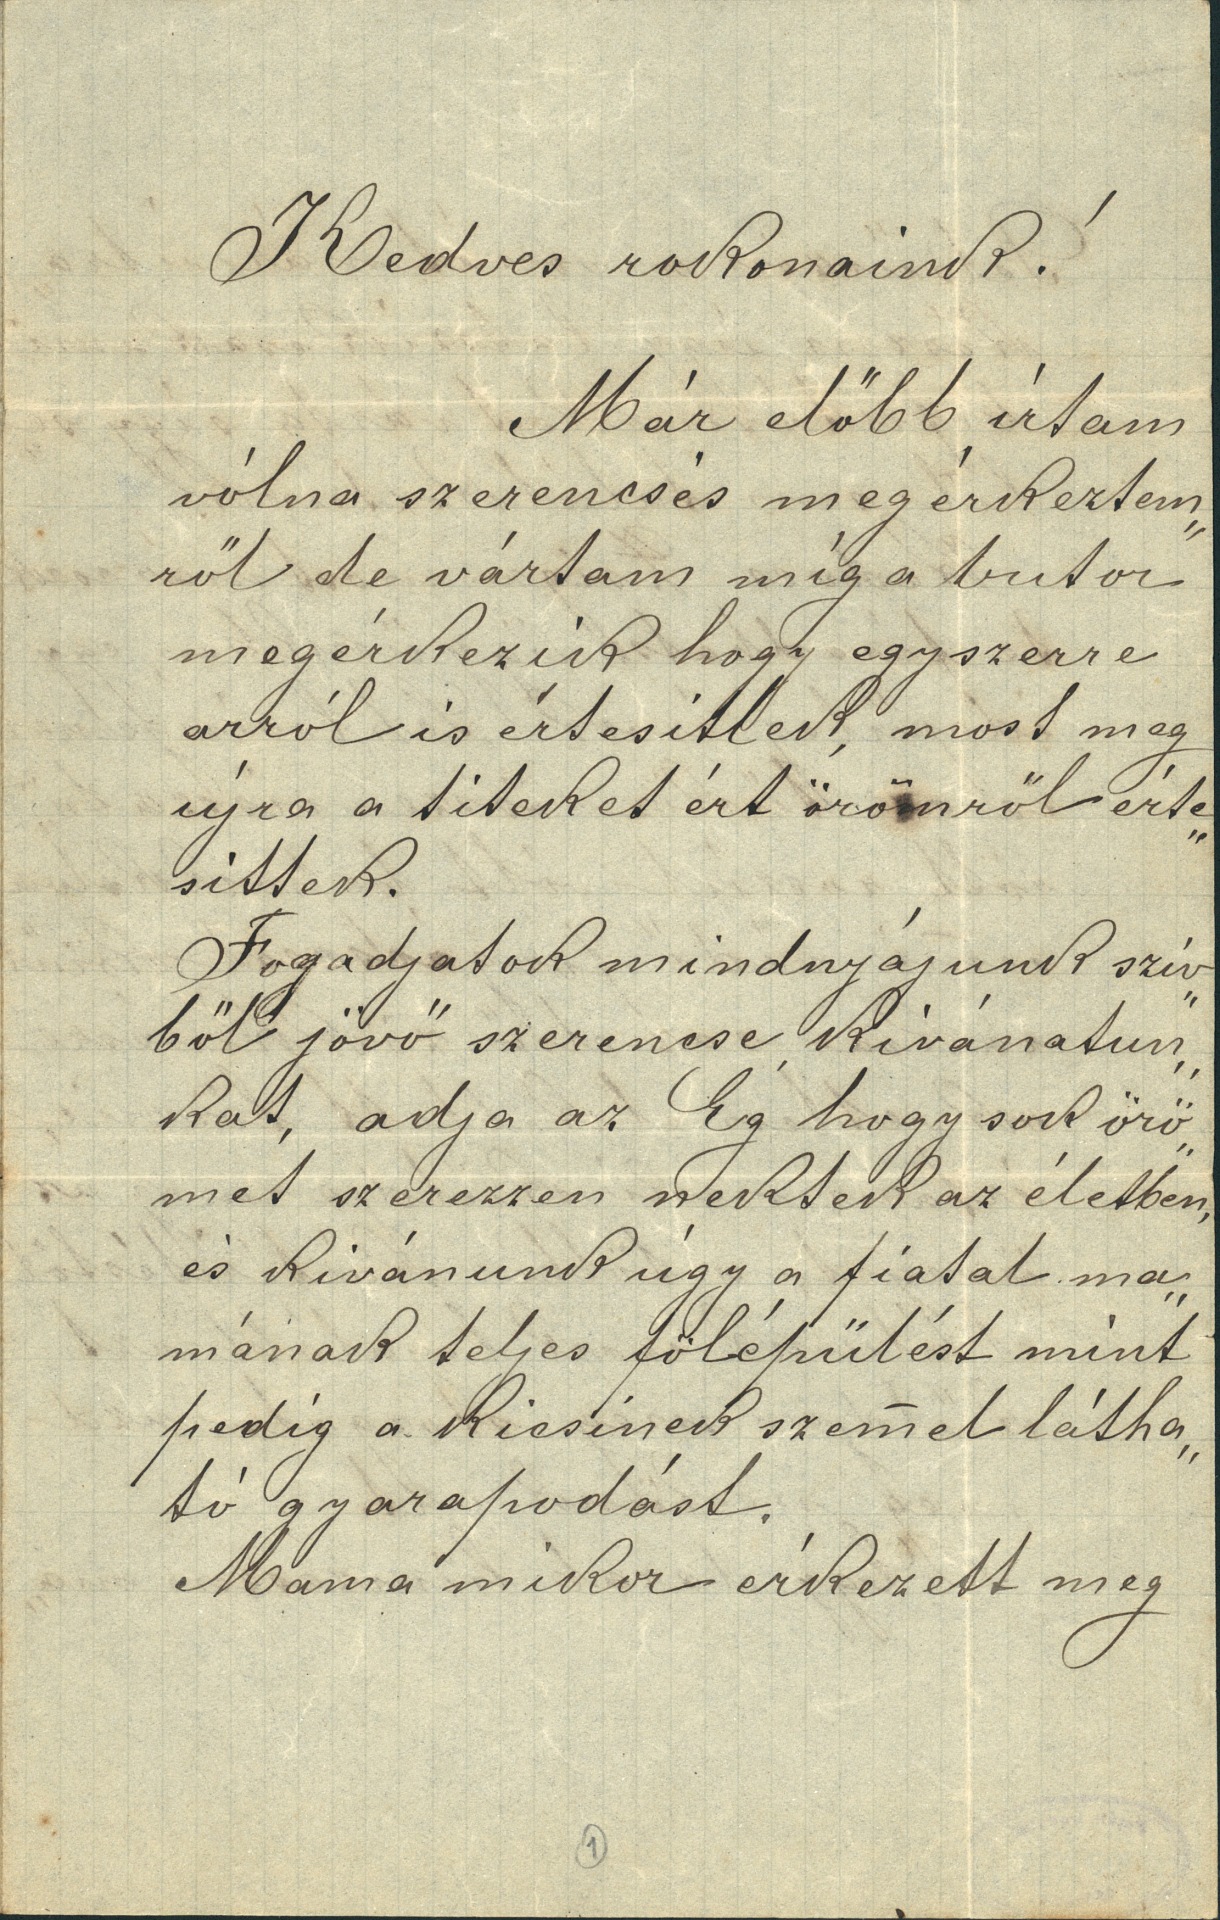 Kedves rokonaink!
Már előbb írtam
vólna szerencsés megérkeztem„
ről de vártam míg a butor
megérkezik hogy egyszerre
arról is értesitlek, most meg
újra a titeket ért örömről érte„
sittek.
Fogadjatok mindnyájunk szív„
ből jövő szerencse kivánatun„
kat, adja az Ég hogy sok örö„
met szerezzen nektek az életben,
és kivánunk úgy a fiatal ma„
mának teljes fölépülést mint
pedig a kicsinek szem̅el látha„
tó gyarapodást.
Mama mikor érkezett meg
1